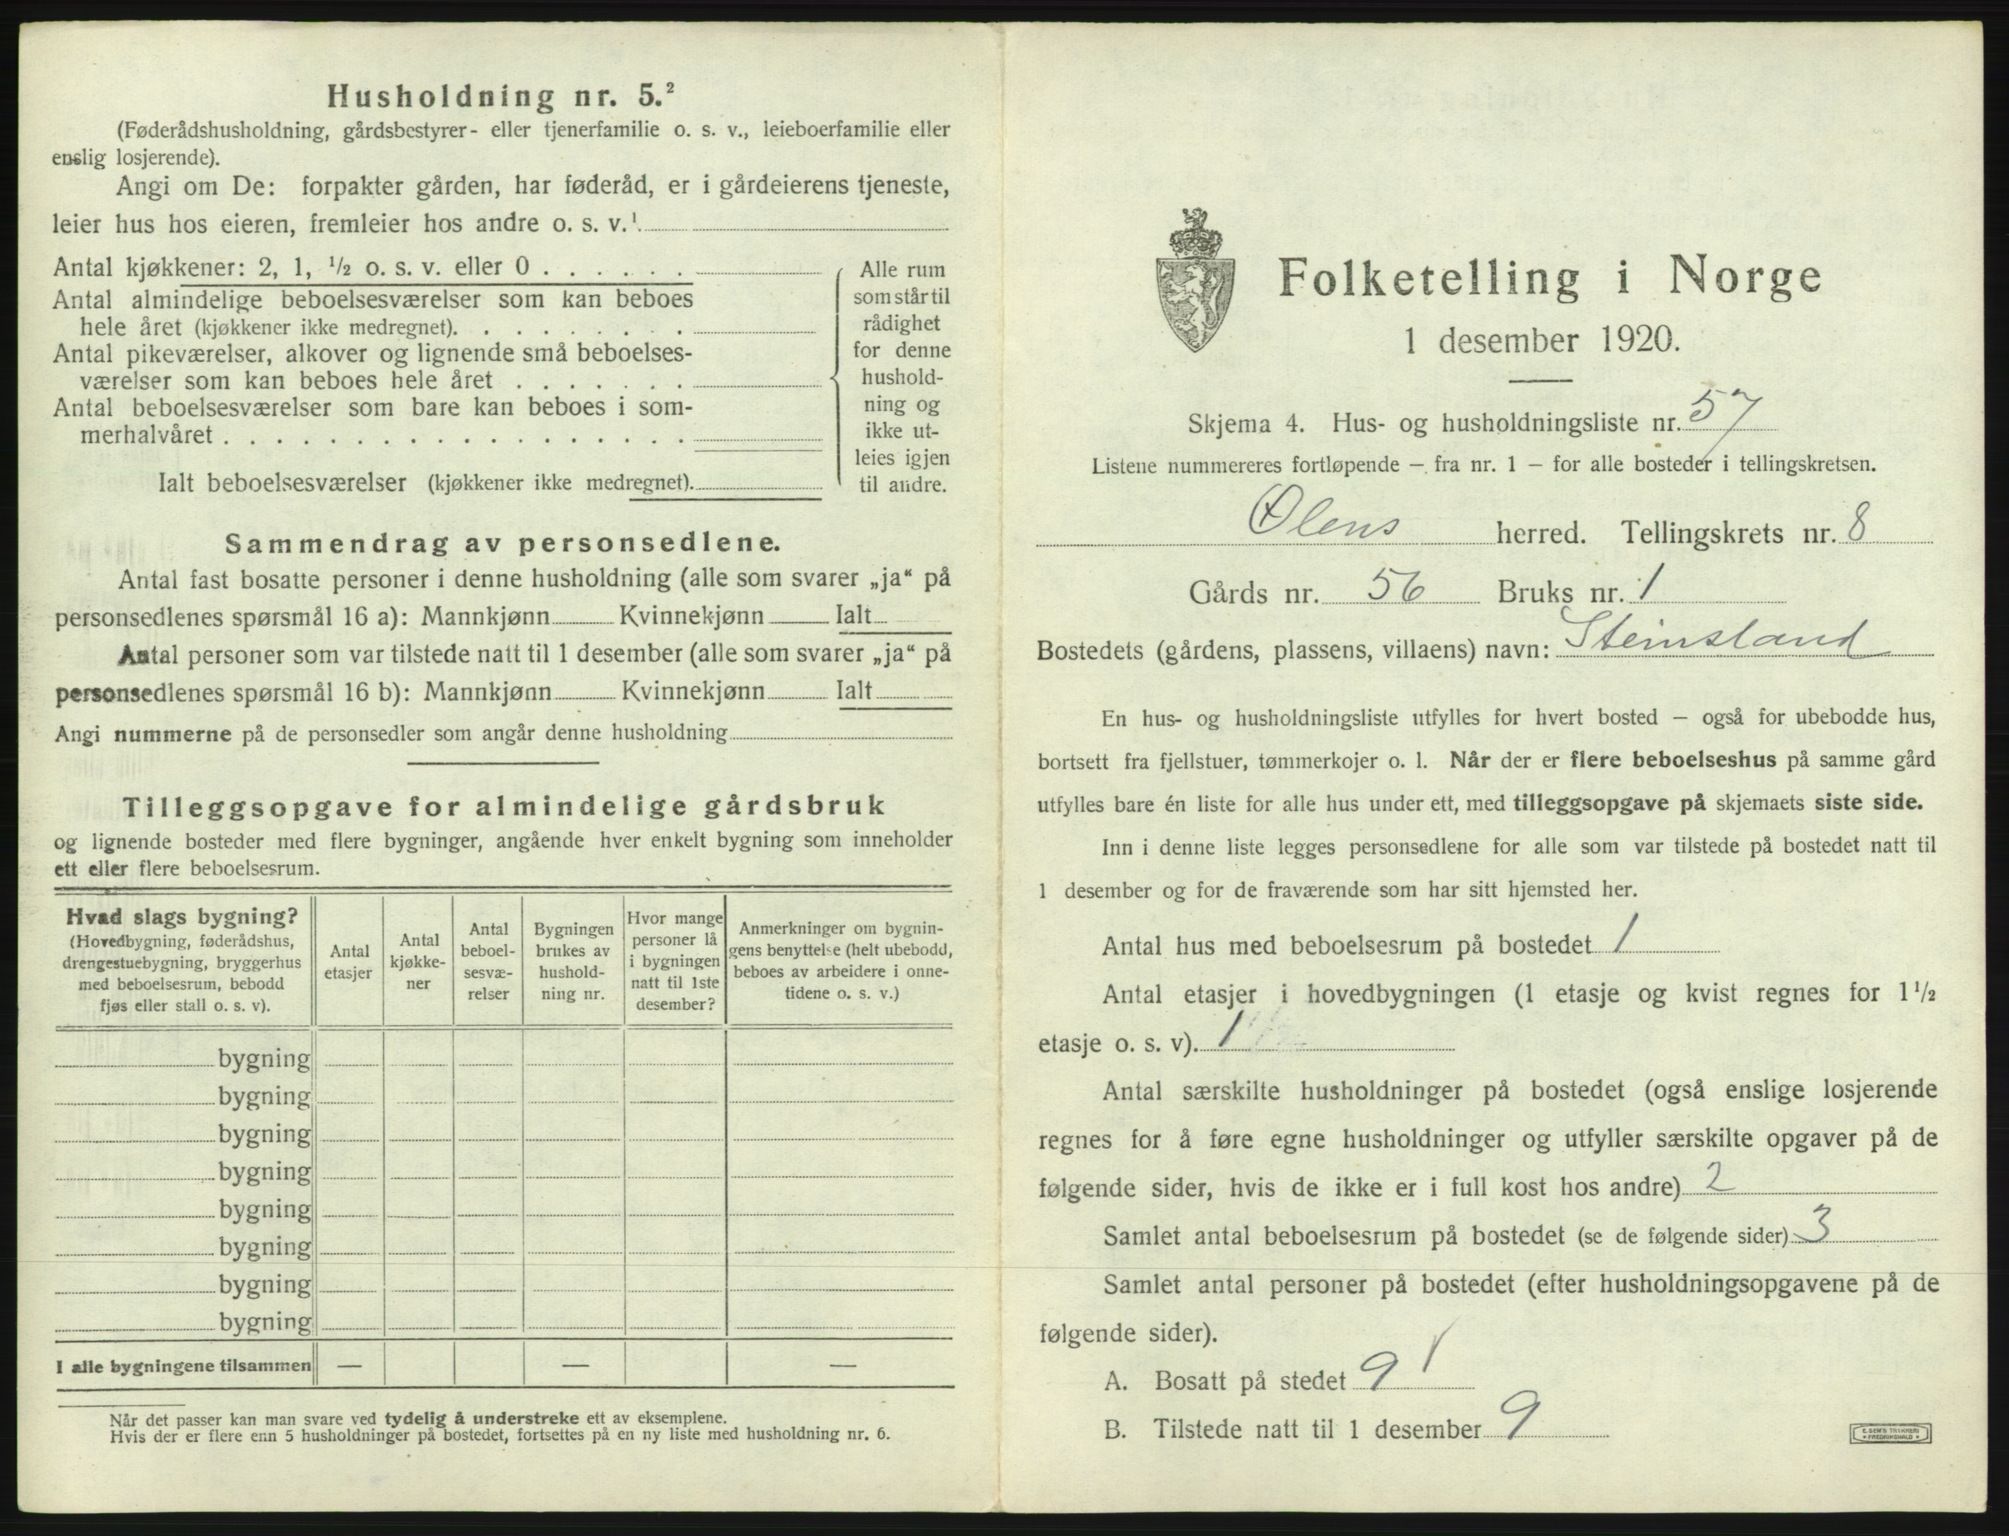 Husholdning nr. 5.²
(Føderådshusholdning, gårdsbestyrer- eller tjenerfamilie o. s. v., leieboerfamilie eller
enslig losjerende).
Angi om De: forpakter gården, har føderåd, er i gårdeierens tjeneste,
leier hus hos eieren, fremleier hos andre o. s. v.¹
Antal kjøkkener: 2, 1, ½ o. s. v. eller 0 . . . . . .
Antal almindelige beboelsesværelser som kan beboes
hele året (kjøkkener ikke medregnet). . . . . . . . .
Antal pikeværelser, alkover og lignende små beboelses-
værelser som kan beboes hele året . . . . . . .
Antal beboelsesværelser som bare kan beboes i som-
merhalvåret . . . . . . . . . . . . . . . . . .
Ialt beboelsesværelser (kjøkkener ikke medregnet).
Alle rum
som står til
rådighet
for denne
hushold-
ning og
ikke ut-
leies igjen
til andre.
Sammendrag av personsedlene.
Antal fast bosatte personer i denne husholdning (alle som svarer „ja“ på
personsedlenes spørsmål 16 a): Mannkjønn Kvinnekjønn Ialt
Antal personer som var tilstede natt til 1 desember (alle som svarer „ja“ på
personsedlenes spørsmål 16 b): Mannkjønn Kvinnekjønn Ialt
Angi nummerne på de personsedler som angår denne husholdning
Tilleggsopgave for almindelige gårdsbruk
og lignende bosteder med flere bygninger, angående hver enkelt bygning som inneholder
ett eller flere beboelsesrum.
Hvad slags bygning?
(Hovedbygning, føderådshus,
drengestuebygning, bryggerhus
med beboelsesrum, bebodd
fjøs eller stall o. s. v).
Antal
etasjer
Antal
kjøkke-
ner
Antal
beboel-
sesvæ-
relser
Bygningen
brukes av
hushold-
ning nr.
Hvor mange
personer lå
i bygningen
natt til 1ste
desember?
Anmerkninger om bygnin-
gens benyttelse (helt ubebodd,
beboes av arbeidere i onne-
tidene o. s. v.)
bygning
bygning
bygning
bygning
bygning
bygning
bygning
bygning
I alle bygningene tilsammen — — —
Når det passer kan man svare ved tydelig å understreke ett av eksemplene.
Hvis der er flere enn 5 husholdninger på bostedet, fortsettes på en ny liste med husholdning nr. 6.
Folketelling i Norge
1 desember 1920.
Skjema 4. Hus- og husholdningsliste nr. 57
Listene nummereres fortløpende – fra nr. 1 – for alle bosteder i tellingskretsen.
Ølens herred. Tellingskrets nr. 8
Gårds nr. 56 Bruks nr. 1
Bostedets (gårdens, plassens, villaens) navn: Steinsland
En hus- og husholdningsliste utfylles for hvert bosted – også for ubebodde hus,
bortsett fra fjellstuer, tømmerkojer o. l. Når der er flere beboelseshus på samme gård
utfylles bare én liste for alle hus under ett, med tilleggsopgave på skjemaets siste side.
Inn i denne liste legges personsedlene for alle som var tilstede på bostedet natt til
1 desember og for de fraværende som har sitt hjemsted her.
Antal hus med beboelsesrum på bostedet 1
Antal etasjer i hovedbygningen (1 etasje og kvist regnes for 1½
etasje o. s. v). 1
Antal særskilte husholdninger på bostedet (også enslige losjerende
regnes for å føre egne husholdninger og utfyller særskilte opgaver på de
følgende sider, hvis de ikke er i full kost hos andre) 2
Samlet antal beboelsesrum på bostedet (se de følgende sider) 3
Samlet antal personer på bostedet (efter husholdningsopgavene på de
følgende sider).
A. Bosatt på stedet 9
B. Tilstede natt til 1 desember 9
E. SEM'S TRYKKERI
FREDRIKSHALD